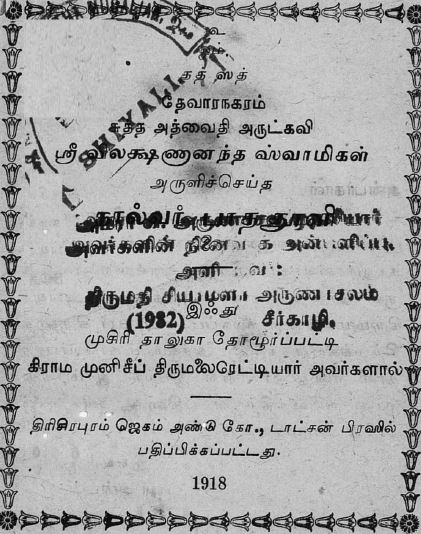 உ
தத் ஸத்
SHIYALI.
தேவாரநகரம்
சுத்த அத்வைதி அருட்கவி
ஸ்ரீ விலக்ஷணானந்த ஸ்வாமிகள்
அருளிச்செய்த
அவர்களின் நினைவாக அன்பளிப்பு
திருமதி அருணாசலம்
இஃது
(1982) சீர்காழி.
முசிரி தாலுகா தோமூர்ப்பட்டி
கிராம முனிசீப் திருமலைரெட்டியார் அவர்களால்
திரிசிரபுரம் ஜெகம் அண்டு கோ., டாட்சன் பிரஸில்
பதிப்பிக்கப்பட்டது.
1918